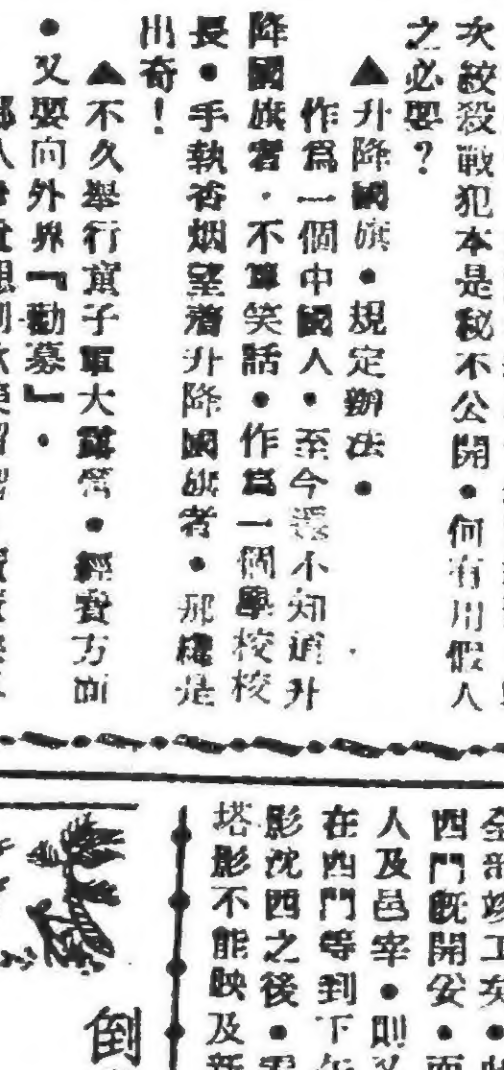 次絞殺戰犯本是秘不公開•何有用假人
之必要？
▲升降國旗•規定辦法•
作爲一個中國人•至今還不知道升
降國旗者•不算笑話•作爲一個學校校
長•手執香烟望着升降國旗者•那纔是
出奇！
▲不久舉行童子軍大露營•經費方面
•又要向外界『勸募』•
全部竣工矣•
四門既開妥•而
人及邑宰•則又
在西門等到下午
影沈西之後•
塔影不能映及新
倒